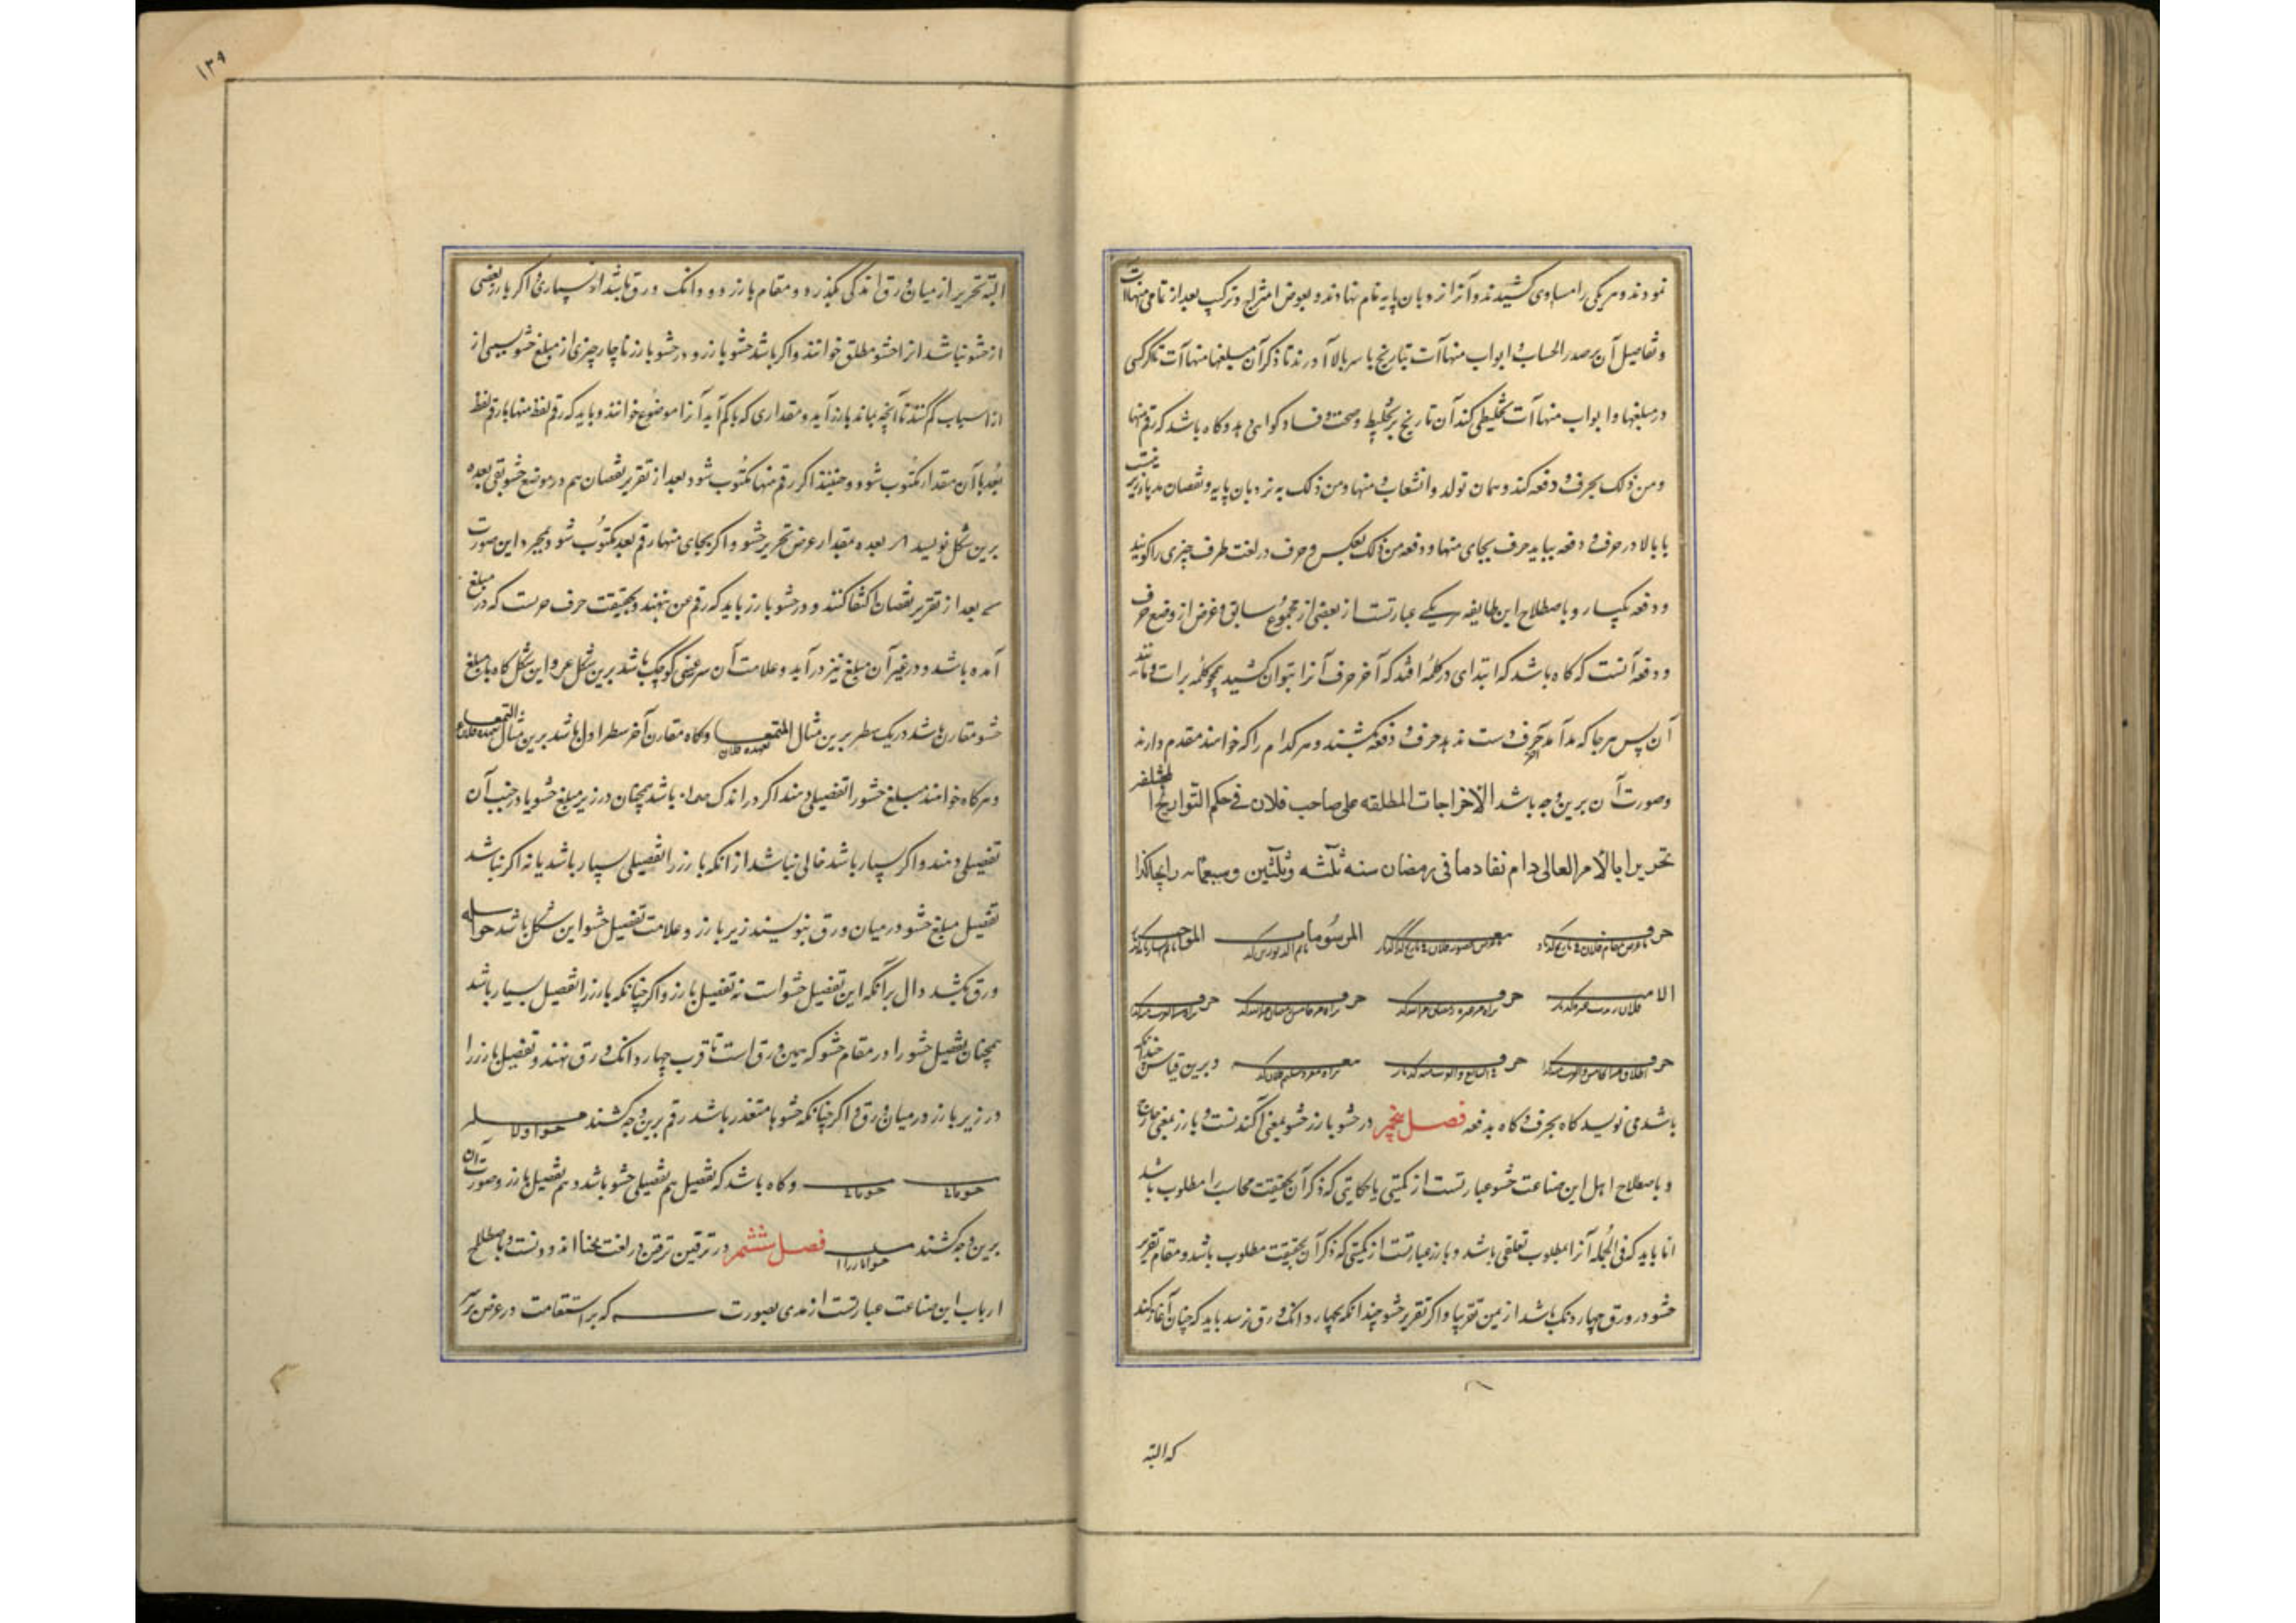 نمودند و هر یکی را مساوی کشیدند و آنرا نردبان پایه نام نهادند و بعوض امثراله و ترکیب بعد از تمامی منهاآت
و تفاصیل آن بر صدر الحساب و ابواب منهاآت بتاریخ با سر بالا آورند تا ذکر آن مبلغها منهاآت تا کر کسی
در مبلغها و ابواب منهاآت تخلیطی کند آن تاریخ بر تخلیط و صحت و فساد گواهی دهد و گاه باشد که رقم منها
و من ذلک بحرف و دفعه کند و همان تولد و انشعاب و منها و من ذلک به نردبان پایه و نقصان
یا بالا در حرف و دفعه بباید حرف بجای منها و دفعه من ذلک بعکس و حرف در لغت طرف چیزی را گویند
و دفعه یکبار و باصطلاح این طایفه هر یکی عبارتست از بعضی از مجموع سابق و غرض از وضع حرف
و دفعه آنست که گاه باشد که ابتدای در کلمه افتد که آخر حرف آنرا بتوان کشید همچو کلمه برات و مانند
آن پس هر جا که مد آمد حرف دست ندهد حرف و دفعه بکشند و هر کدام را که خواهند مقدم دارند
و صورت آن برین وجه باشد الاخراجات المطلقه علی صاحب فلان فی حکم التواریخ المختلفه
تحریرا بالامر العالی دام نفاذه ما فی رمضان سنه ثلثه و ثلثین و سبعمائه رایجا کذا
حرف حرف المرسومات المواجب
الامیر حرف حرف حرف
حرف حرف و برین قیاس چندانکه
باشد می نویسد گاه بحرف و گاه بدفعه فصل پنجم در حشو بارز حشو بمعنی آکندنست و بارز بمعنی خارج
و باصطلاح اهل این صناعت حشو عبارتست از کمیتی یا حکایتی که ذکر آن بحقیقت محاسب را مطلوب باشد
اما باید که فی الجمله آنرا بمطلوب تعلقی باشد و بارز عبارتست از کمیتی که ذکر آن بحقیقت مطلوب باشد و مقام تقریر
حشو در ورق چهار دانک باشد از یمن تقریبا و اگر تقریر حشو چندانکه بچهار دانک ورق نرسد باید که چنان آغاز کند
که البته
۱۳۹
البته تحریر از میان ورق اندکی بگذرد و مقام بارز دو دانک ورق باشد از یسار و اگر بارز بعضی
از حشو نباشد آنرا حشو مطلق خوانند و اگر باشد حشو بارز و در حشو بارز ناچار چیزی از مبلغ حشو بسببی از
از اسباب کم کنند تا آنچه بماند بارز آید و مقداری که با کم آید آنرا موضوع خوانند و باید که رقم لفظ منها یا رقم لفظ
بعد با آن مقدار مکتوب شود و حینئذ اگر رقم منها مکتوب شود بعد از تقریر نقصان هم در موضع حشو بقی بعده
برین شکل نویسد بعده مقدار عرض تحریر حشو و اگر بجای منها رقم بعد مکتوب شود بمجرد این صورت
بعد از تقریر نقصان اکتفا کنند و در حشو بارز باید که رقم عن بنهند و بحقیقت حرف جرست که در مبلغ
آمده باشد و در غیر آن مبلغ نیز در آید و علامت آن سر عینی کوچک باشد برین شکل عر و این شکل گاه با مبلغ
حشو مقارن باشد در یک سطر برین مثال و گاه مقارن آخر سطر اول باشد برین مثال
و هر گاه خواهند مبلغ حشو را تفصیلی دهند اگر در اندک باشد همچنان در زیر مبلغ حشو یا در جنب آن
تفصیلی دهند و اگر بسیار باشد خالی نباشد از آنکه بارز را تفصیلی بسیار باشد یا نه اگر نباشد
تفصیل مبلغ حشو در میان ورق بنویسند زیر بارز و علامت تفصیل حشو این شکل باشد حواصله
ورق بکشد دال بر آنکه این تفصیل حشو است نه تفصیل بارز و اگر چنانکه بارز را تفصیل بسیار باشد
همچنان تفصیل حشو را در مقام حشو که یمین ورق است تا قرب چهار دانک ورق نهند و تفصیل بارز را
در زیر بارز در میان ورق و اگر چنانکه حشوها متعذر باشد رقم برین وجه کشند
و گاه باشد که تفصیل هم تفصیل حشو باشد و هم تفصیل بارز و صورت آن
برین وجه کشند فصل ششم در ترقین ترقین در لغت بحنا اندودنست و باصطلاح
ارباب این صناعت عبارتست از مدی بصورت که بر استقامت در عرض